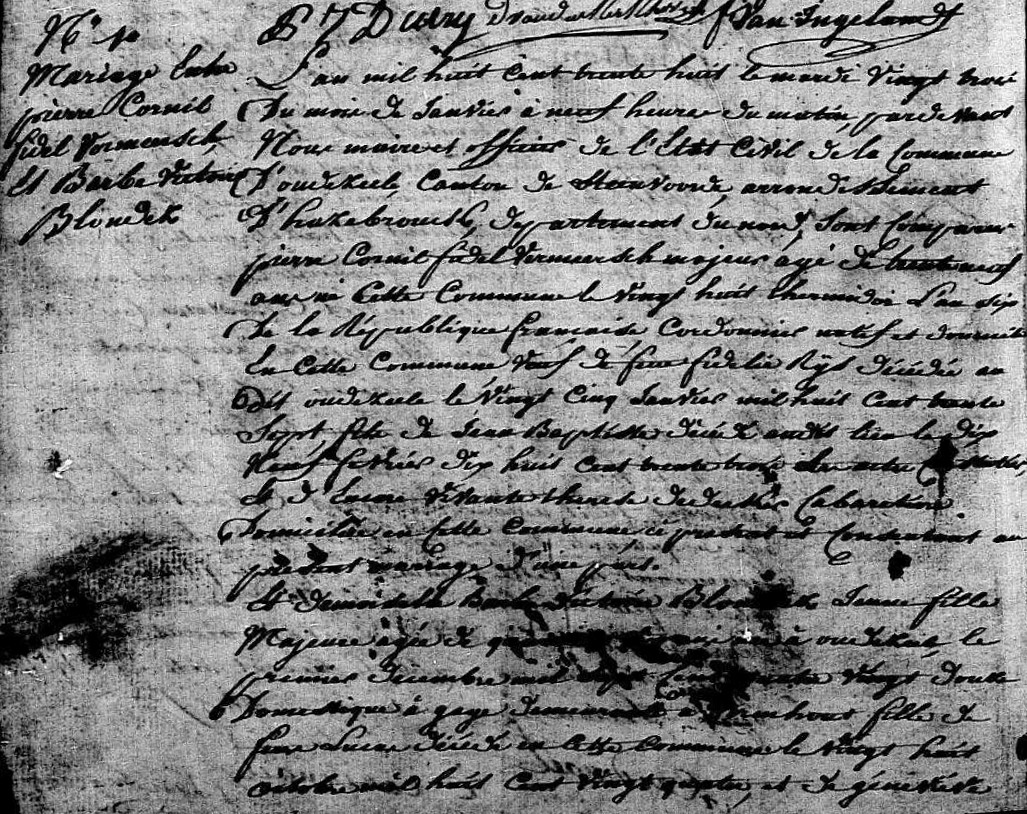 P J Durry Van Ingelandt
N° 1
Mariage Entre
pierre Cornil
fidel Vermeersch
Et Barbe Victoire
Blondek
L'an mil huit Cent trente huit le mardi vingt trois
Du mois de Janvier à neuf heures du matin, par devant
Nous maire et officier de l'Etat Civil de la Commune
D'oudezeele Canton de Steenvoorde arrondissement
D'hazebrouck, département du nord, sont Comparus
pierre Cornil fidel Vermeersch majeur agé de trente neuf
ans né Cette Commune le vingt huit thermidor L'an six
De la République française Cordonnier natif et domicilié
En Cette Commune veuf de feue fidelie Ryst décédée au
dit oudezeele le vingt Cinq Janvier mil huit Cent trente
Sept, fils de Jean Baptiste décédé audit lieu le dix
Neuf fevrier dix huit cent trente trois
Et d'Encore vivante therese Cabaretière
Domiciliée en Cette Commune, ci présent et Consentant au
présent mariage d'une part.
Et demoiselle Barbe Victoire Blondek Jeune fille
Majeure agée de née à oudezeele, le
premier décembre mil sept Cent quatre vingt douze
Domestique à gage demeurant à fille de
feue décédé en Cette Commune le vingt huit
octobre mil huit Cent vingt quatre, et de géneviève